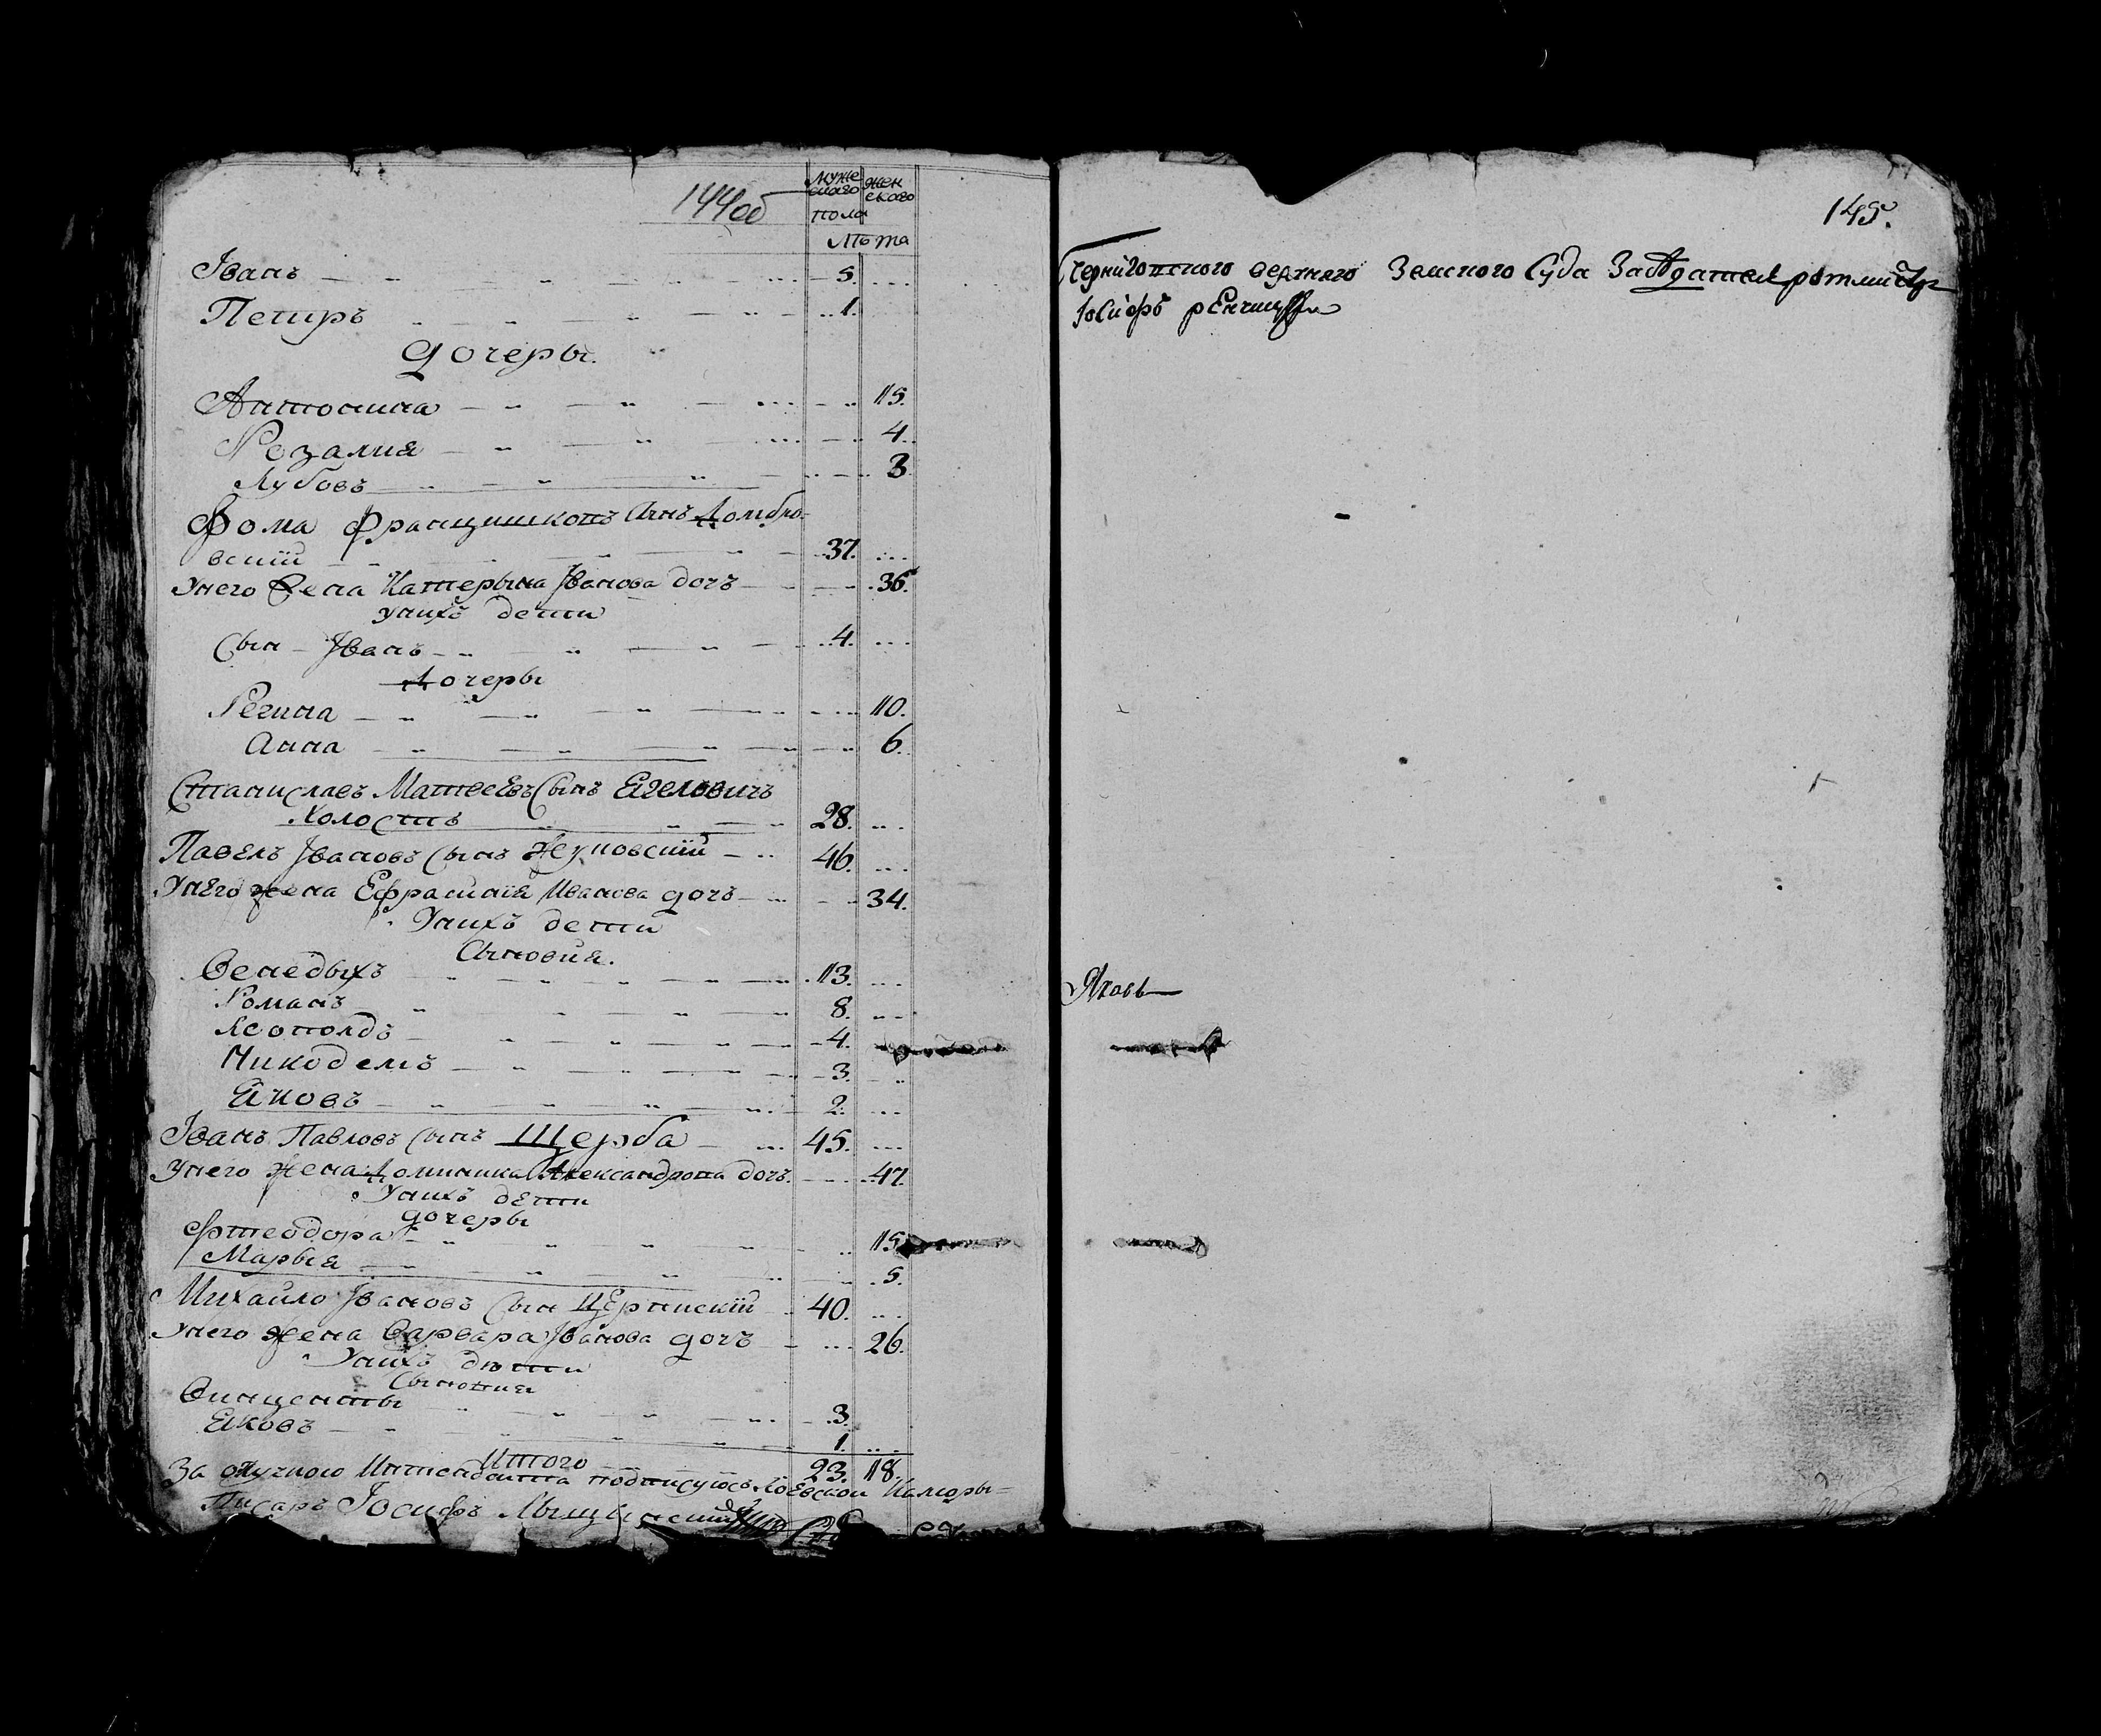 144об
муже
скаго
жен
скаго
пола
Лѣта
Іванъ 5.
Петръ 1.
Дочеры.
Антонина 15.
Розалия 4.
Лубовъ 3
Фома Францишковъ Сынъ Домбро=
вский 37.
Унего Жена Катерына Іванова дочъ 36.
Унихъ дети
Сын Іванъ 4.
Дочеры
Регина 10.
Анна 6.
Станиславъ Матвеевъ Сынъ
Холостъ 28.
Павелъ Івановъ Сынъ 46.
Унего жена Ефрасиния Иванова дочъ 34.
Унихъ дети
Сыновия.
Венедыхъ 13.
Романъ 8.
Леополдъ 4.
Никодемъ 3.
Яковъ 2.
Іванъ Павловъ Сынъ Щерба 45.
Унего жена Доминика Александрова дочъ. 47.
Унихъ дети
дочеры
Фтеодора 15.
Марыя 5.
Михайло Івановъ Сын 40.
Унего жена Варвара Іванова дочъ 26.
Унихъ дѣти
Сыновия
Винценты 3.
Яковъ 1.
Итого 23. 18.
За Интенданта подписуюсъ
Писаръ Іосифъ
145.
Черниговского верхнего Земского Суда Заседател ротмистр
Іосифъ